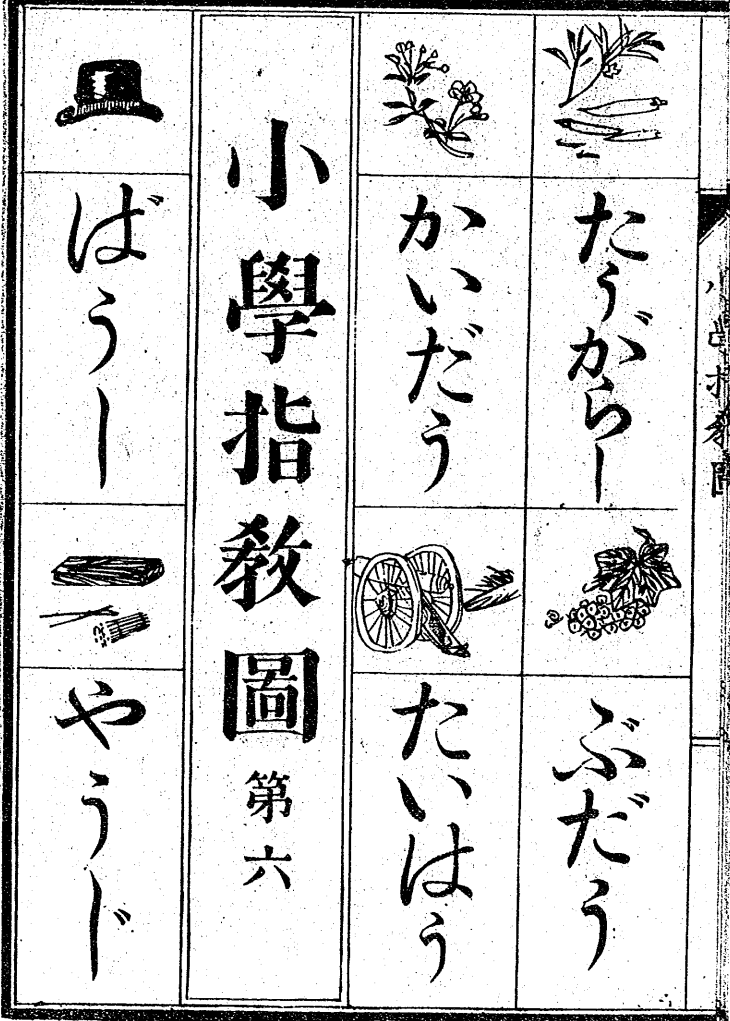 たうがらし
ぶだう
かいだう
たいはう
小學指教圖 第六
ばうし
やうじ